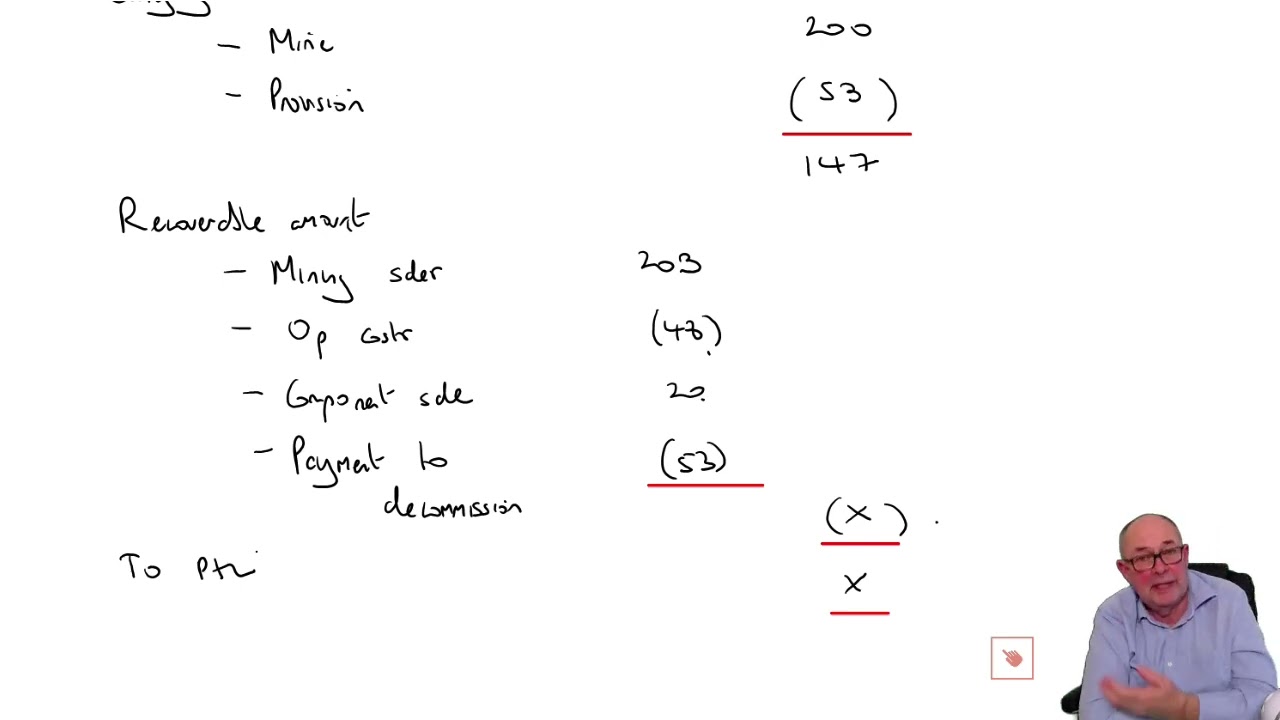 - Mine 200
- Provision (53)
147
Recoverable amount
- Mining sales 203
- Op costs
- Component sale 20
- Payment to (53)
decommission
(X)
To P+L
X